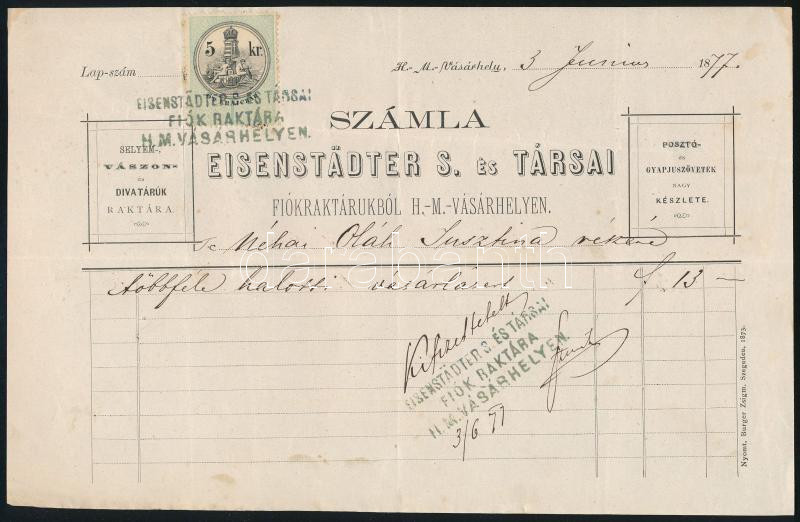 5 kr.
Lap-szám
H.-M.-Vásárhely, 3 Junius 1877.
EISENSTÄDTER S. ÉS TÁRSAI
FIÓK RAKTÁRA
H.M.VÁSÁRHELYEN.
SZÁMLA
SELYEM-,
VÁSZON-
ÉS
DIVATÁRÚK
RAKTÁRA.
EISENSTÄDTER S. ÉS TÁRSAI
FIÓKRAKTÁRUKBÓL H.-M.-VÁSÁRHELYEN.
POSZTÓ-
ÉS
GYAPJUSZÖVETEK
NAGY
KÉSZLETE.
Néhai Oláh Jusztina részére
többféle halotti vásárlásért f 13 —
Kifizettetett
EISENSTÄDTER S. ÉS TÁRSAI
FIÓK RAKTÁRA
H.M.VÁSÁRHELYEN.
3/6 77
Nyomt. Burger Zsigm. Szegeden, 1873.
darabanth